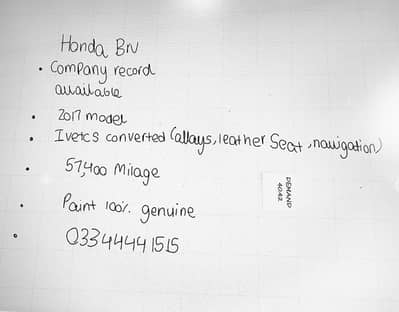 Honda BRV
• Company record
available
• 2017 model
• Ivetcs converted (alloys, leather seat, navigation)
• 57,400 Milage
• Paint 100% genuine
• 03344441515
DEMAND
40.42